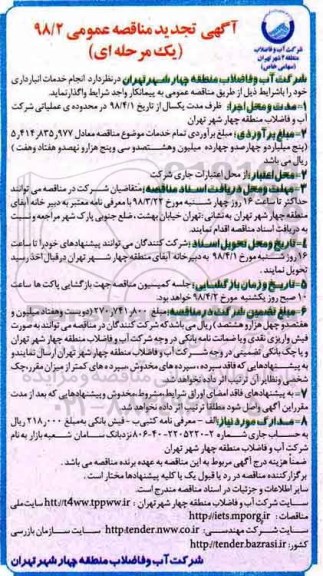 آگهی تجدید مناقصه عمومی ۹۸/۲
(یک مرحله ای)
شرکت آب و فاضلاب
منطقه ۴ شهر تهران
(سهامی خاص)
شرکت آب و فاضلاب منطقه چهار شهر تهران در نظر دارد انجام خدمات انبارداری
خود را باشرایط ذیل از طریق مناقصه عمومی به پیمانکار واجد شرایط واگذار نماید.
۱- مدت و محل اجرا: ظرف مدت یکسال از تاریخ ۹۸/۴/۱ در محدوده ی عملیاتی شرکت
آب و فاضلاب منطقه چهار شهر تهران
۲- مبلغ برآوردی: مبلغ برآوردی تمام خدمات موضوع مناقصه معادل ۵٫۴۱۴٫۸۳۵٫۹۷۷
(پنج میلیارد و چهارصد و چهارده میلیون و هشتصد و سی و پنج هزار و نهصد و هفتاد و هفت)
ریال می باشد
۳- محل اعتبار: از محل اعتبارات جاری شرکت
۴- مهلت ومحل دریافت اسناد مناقصه: متقاضیان شرکت در مناقصه می توانند
حداکثر تا ساعت ۱۶ روز چهار شنبه مورخ ۹۸/۳/۲۲ با معرفی نامه معتبر به دبیر خانه آبفای
منطقه چهار شهر تهران به نشانی: تهران خیابان بهشت، ضلع جنوبی پارک شهر مراجعه و نسبت
به دریافت اسناد مناقصه اقدام نمایند.
تاریخ ومحل تحویل اسناد: شرکت کنندگان می توانند پیشنهادهای خود را تا ساعت
۱۶ روز شنبه مورخ ۹۸/۴/۱ به دبیرخانه آبفای منطقه چهار شهر تهران در قبال اخذ رسید
تحویل نمایند.
۵- تاریخ و زمان بازگشایی: جلسه کمیسیون مناقصه جهت بازگشایی پاکت ها ساعت
۱۰ صبح روز یکشنبه مورخ ۹۸/۴/۲ خواهد بود.
۶- مبلغ تضمین شرکت در مناقصه: مبلغ ۲۷۰٫۷۴۱٫۸۰۰ (دویست وهفتاد میلیون و
هفتصدو چهل هزار و هشتصد) ریال می باشد که شرکت کنندگان در مناقصه می توانند به صورت
فیش واریزی نقدی ویا ضمانت نامه بانکی در وجه شرکت آب و فاضلاب منطقه چهار شهر تهران
و یا چک بانکی تضمینی در وجه شرکت آب و فاضلاب منطقه چهار شهر تهران ارسال نمایند و
به پیشنهادهایی که فاقد سپرده، سپرده های مخدوش، سپرده های کمتر از میزان مقرر، چک
شخصی ونظایر آن ترتیب اثر داده نخواهد شد.
۷- به پیشنهادهای فاقد امضای اوراق شرایط، مشروط، مخدوش و پیشنهادهایی که بعد از مدت
مقرر این آگهی واصل شود مطلقا ترتیب اثر داده نخواهد شد.
۸- مدارک مورد نیاز: الف - معرفی نامه کتبی ب - فیش بانکی به مبلغ ۲۱۸٫۰۰۰ ریال
به حساب جاری شماره نزد بانک سامان شعبه بازار به نام
شرکت آب و فاضلاب منطقه چهار شهر تهران
ضمنا هزینه درج آگهی مربوط به این مناقصه به عهده برنده مناقصه می باشد.
برگزار کننده مناقصه در رد یا قبول یک یا کلیه پیشنهادها مختار است.
سایر اطلاعات و جزئیات در اسناد مناقصه مندرج است.
سایت شرکت آب و فاضلاب منطقه چهار شهر تهران : htt://t4ww.tppww.ir سایت ملی
مناقصات : http://iets.mporg.ir
سایت شرکت مهندسی: http:tender.nww.co.ir سایت سازمان بازرسی
کشور: http://tender.bazrasi.ir
شرکت آب و فاضلاب منطقه چهار شهر تهران